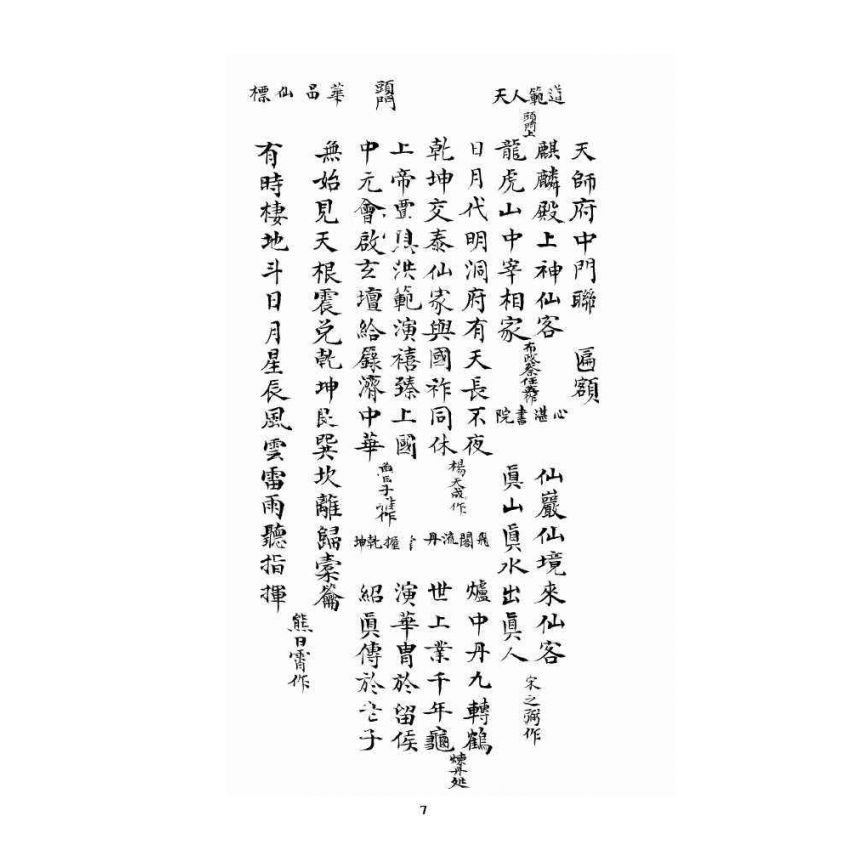 天師府中門聯 匾額
道範人天
頭門上
麒麟殿上神仙客
龍虎山中宰相家
布政蔡
心湛書院
仙巖仙境來仙客
真山真水出真人
宋之弼作
日月代明洞府有天長不夜
乾坤交泰仙家與國祚同休
楊天成作
飛閣流丹
爐中丹九轉鶴
世上業千年龜
煉丹处
頭門
上帝賈具洪範演禧臻上國
中元會啟玄壇給籙濟中華
作
握乾坤
演華胄於留侯
紹眞傳於老子
華品仙標
無始見天根震兌乾坤艮巽坎離歸橐籥
有時棲地斗日月星辰風雲雷雨聽指揮
熊日霽作
7